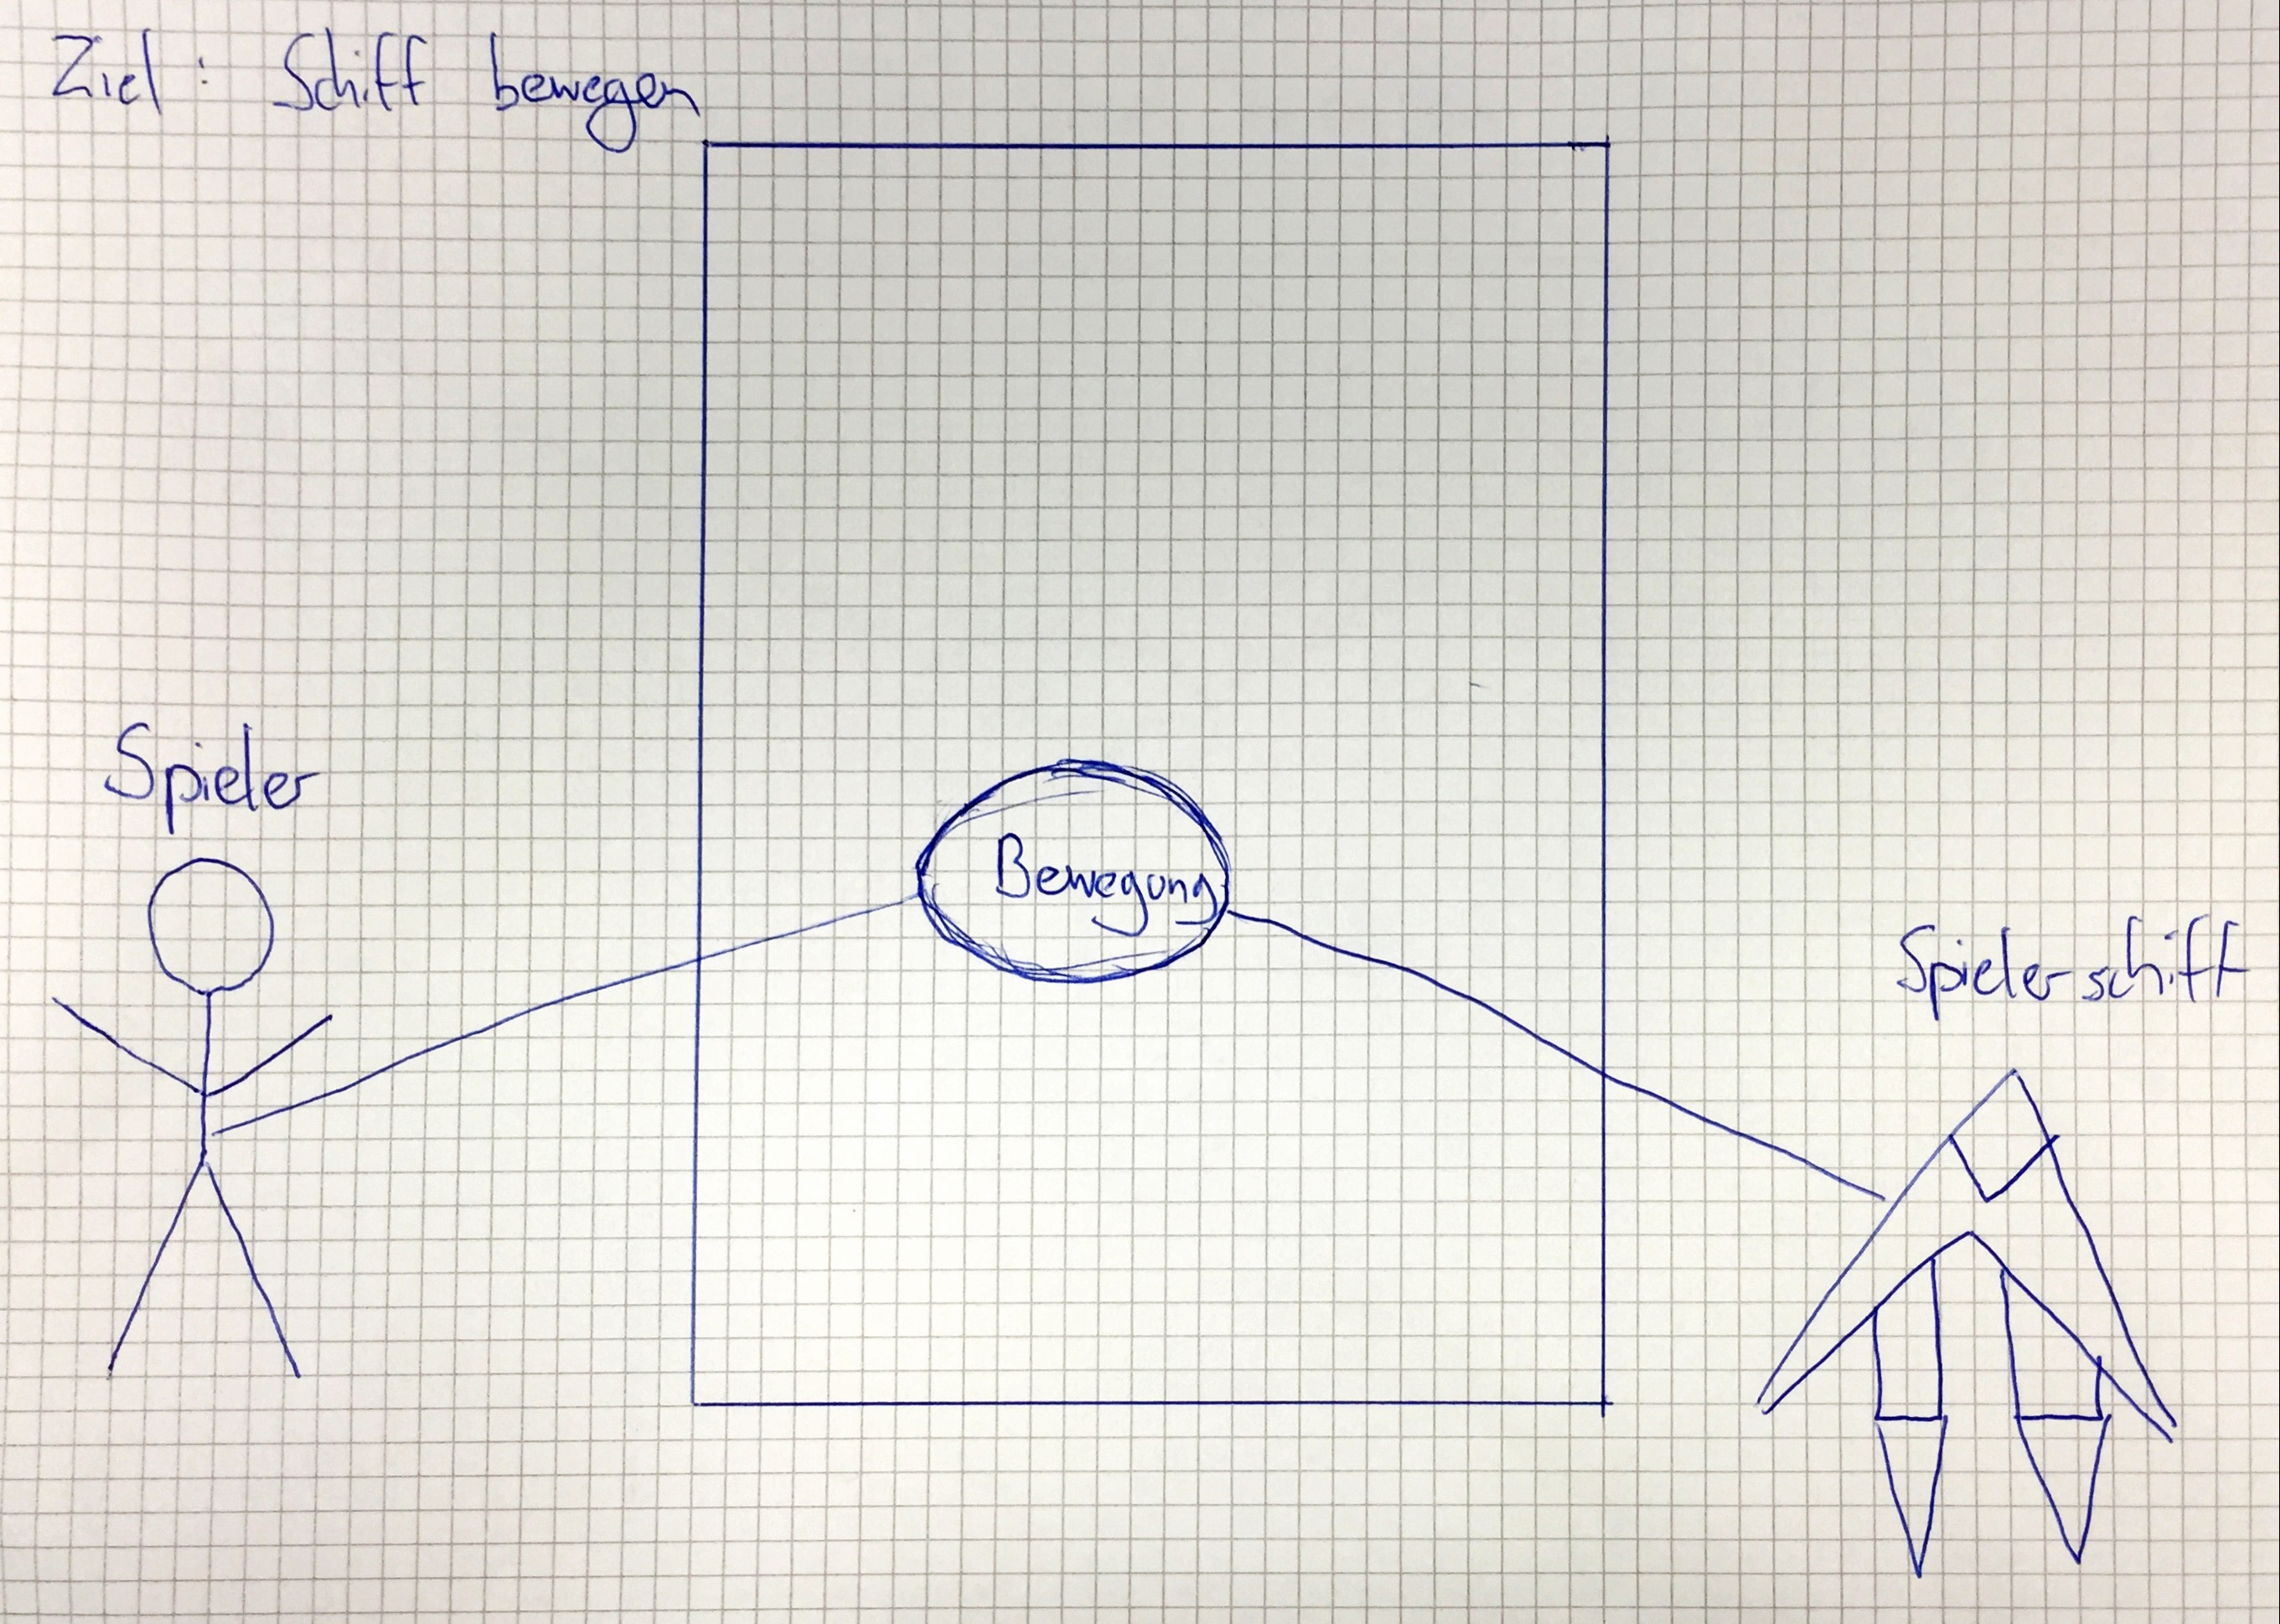 Ziel : Schiff bewegen
Spieler
Bewegung
Spielerschiff